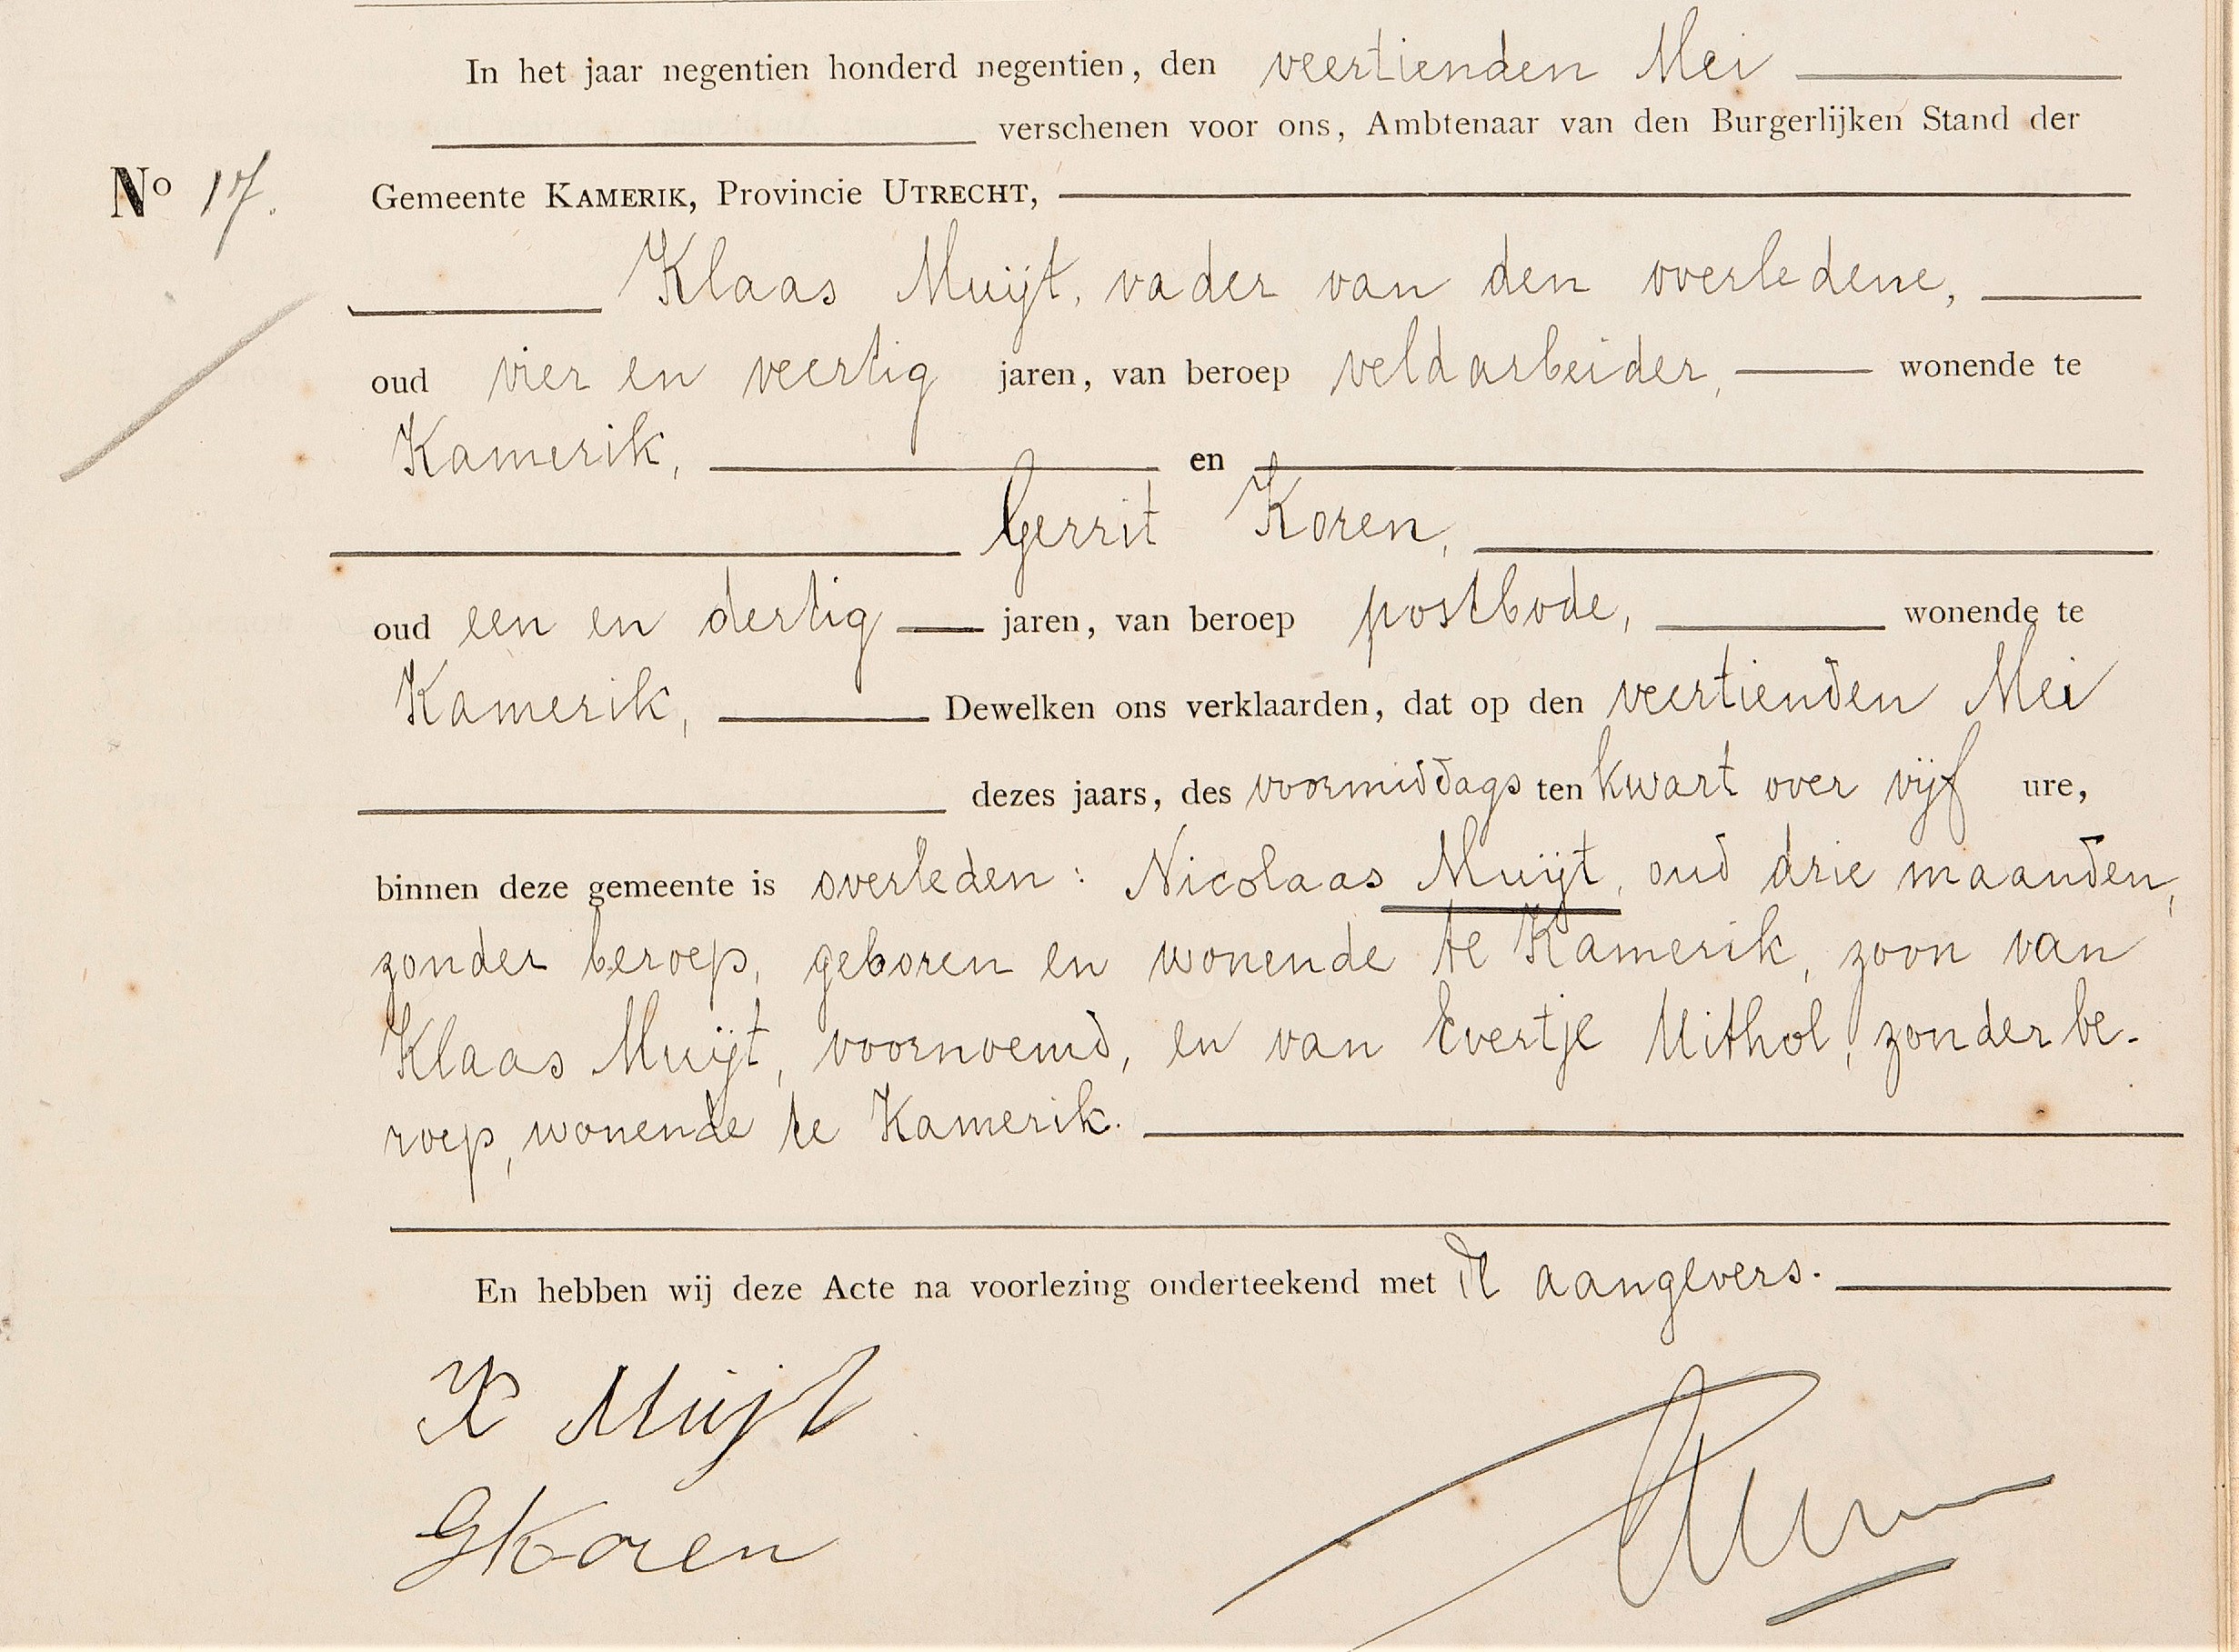 In het jaar negentien honderd negentien, den veertienden Mei
verschenen voor ons, Ambtenaar van den Burgerlijken Stand der
No 17. Gemeente KAMERIK, Provincie UTRECHT,
Klaas Muijt, vader van den overledene,
oud vier en veertig jaren, van beroep veldarbeider, wonende te
Kamerik, en
Gerrit Koren,
oud een en dertig jaren, van beroep postbode, wonende te
Kamerik, Dewelken ons verklaarden, dat op den veertienden Mei
dezes jaars, des voormiddags ten kwart over vijf ure,
binnen deze gemeente is overleden: Nicolaas Muijt, oud drie maanden,
zonder beroep, geboren en wonende te Kamerik, zoon van
Klaas Muijt, voornoemd, en van Evertje Uithol, zonder be-
roep, wonende te Kamerik.
En hebben wij deze Acte na voorlezing onderteekend met de aangevers.
K Muijt
GKoren